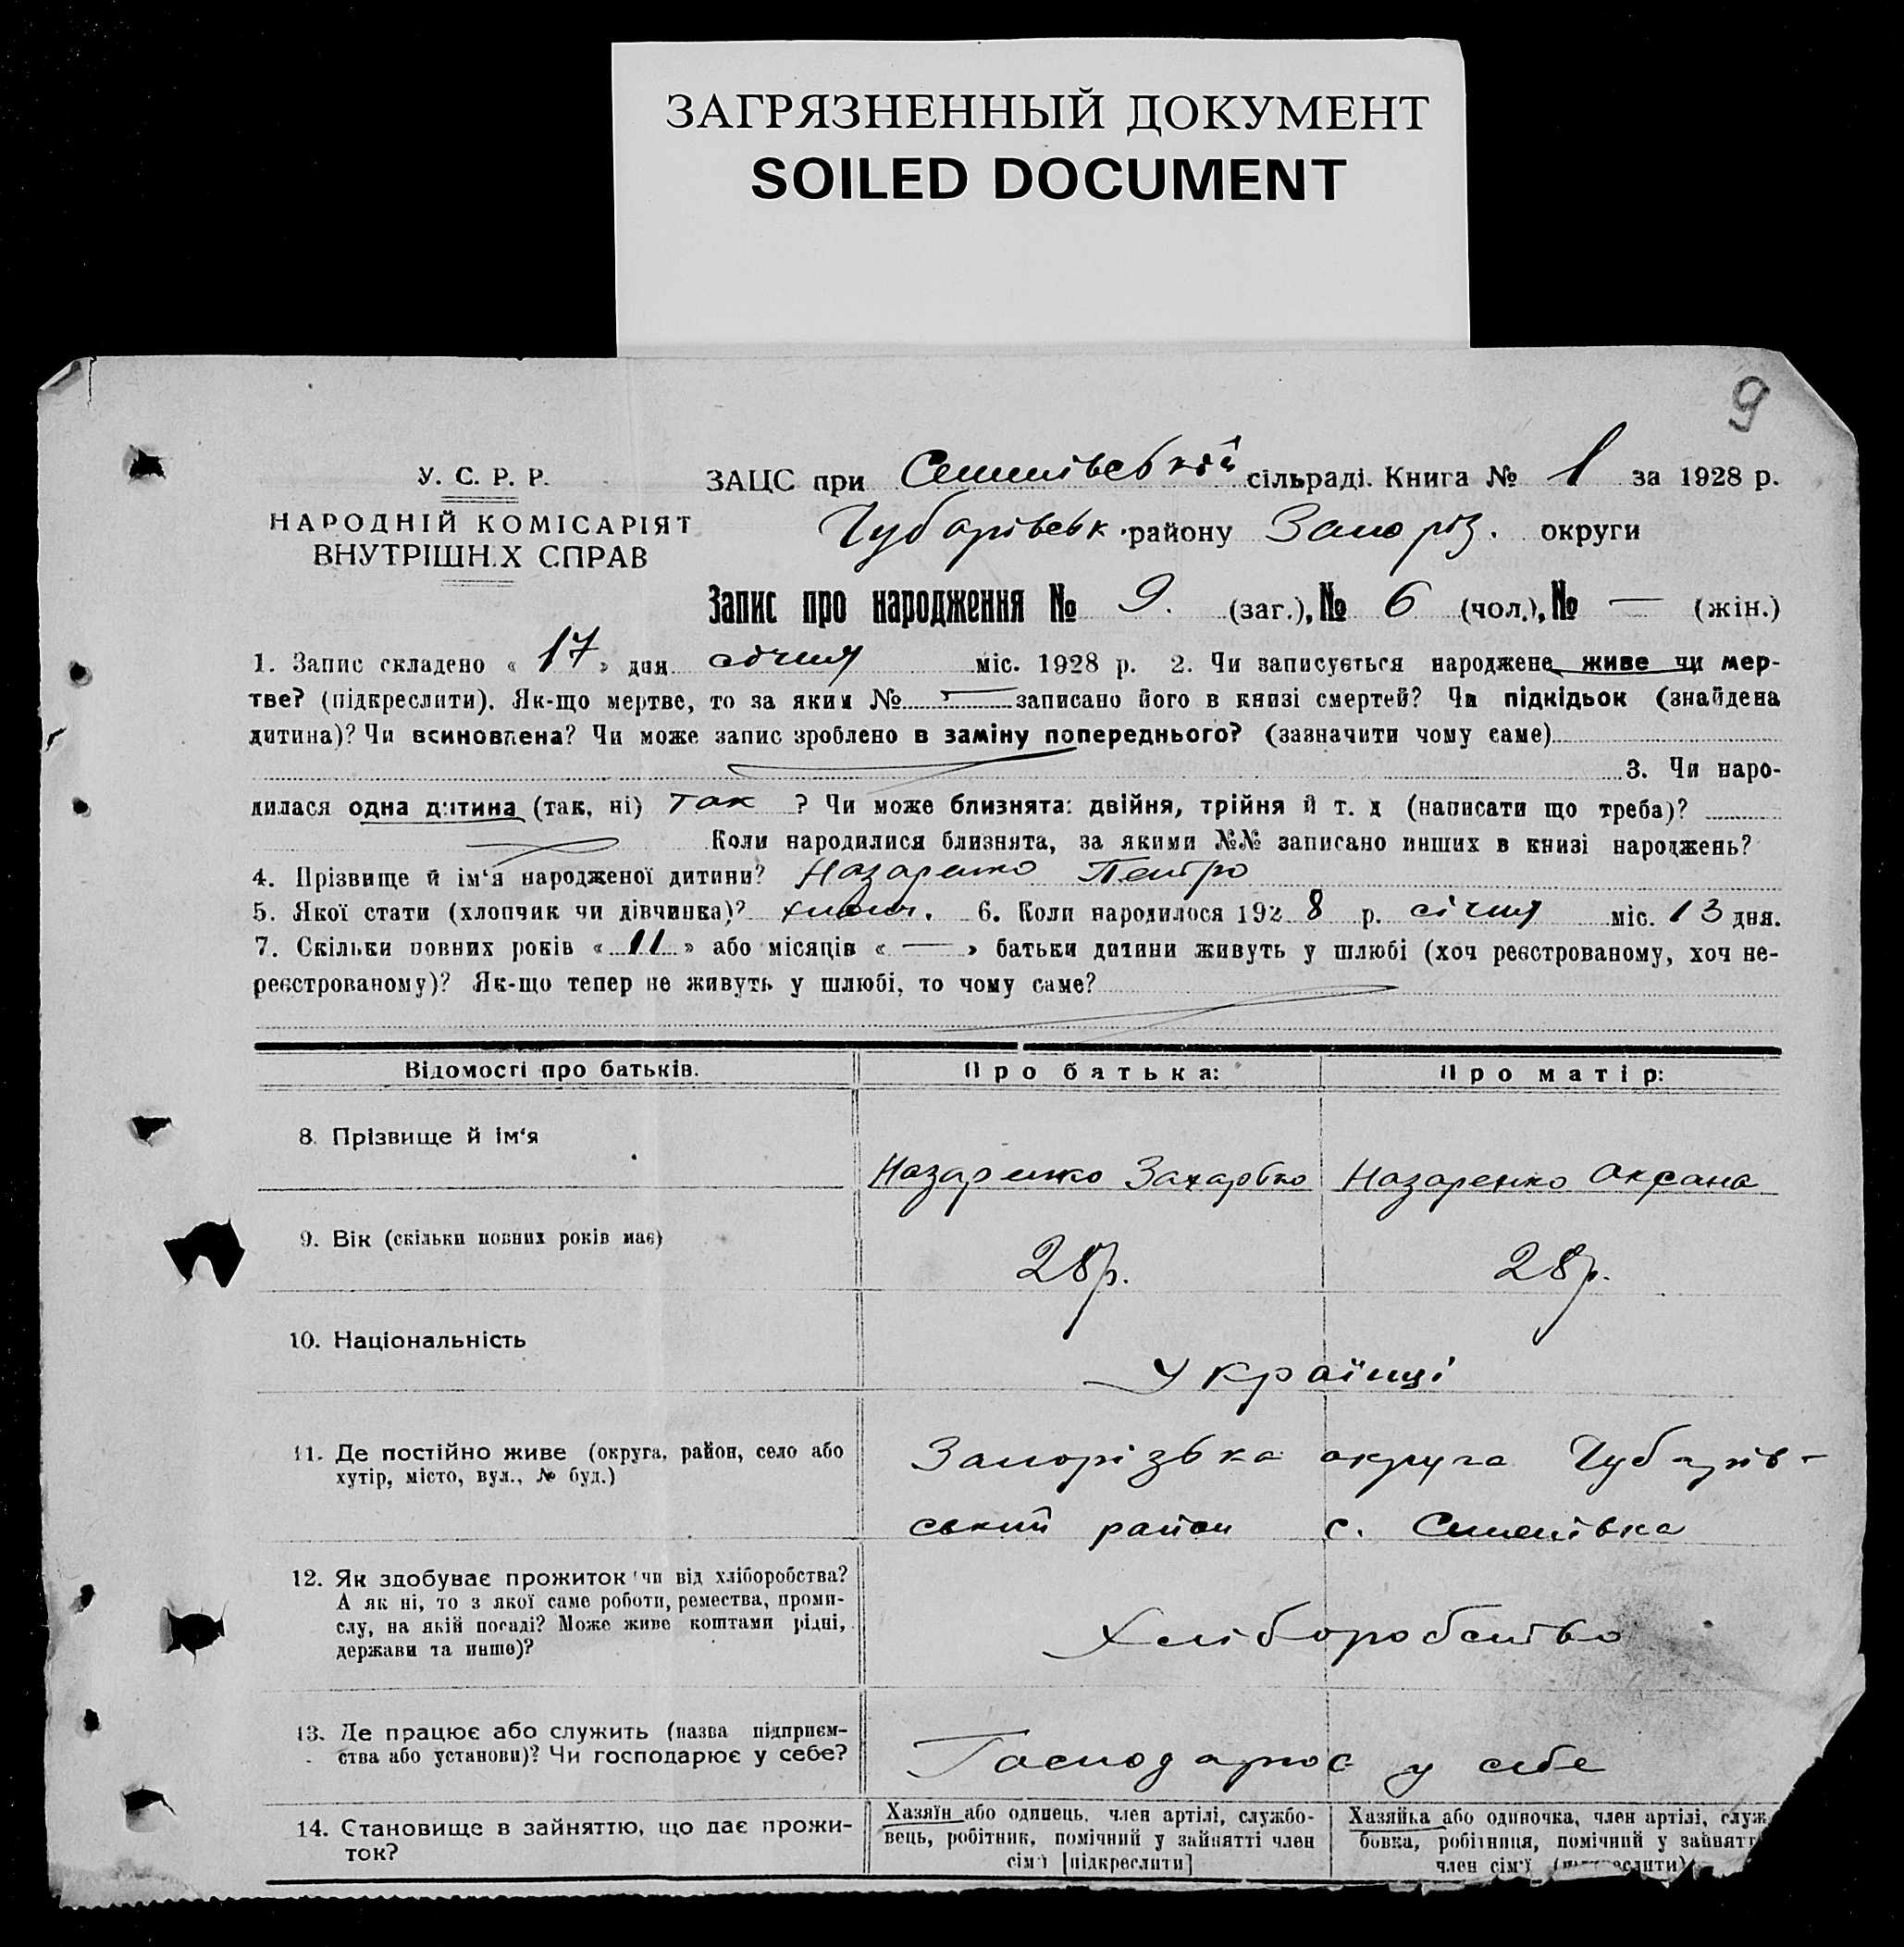 ЗАГРЯЗНЕННЫЙ ДОКУМЕНТ
SOILED DOCUMENT
9
У. С. Р. Р.
НАРОДНІЙ КОМІСАРІЯТ
ВНУТРІШН.Х СПРАВ
ЗАЦС при сільраді. Книга № 1 за 1928 р.
Чубарівськ. району Запоріз. округи
Запис про народження № 9. (заг.), № 6 (чол.), № — (жін.)
1. Запис складено « 17 » дня січня міс. 1928 р. 2. Чи записується народжене живе чи мер-
тве? (підкреслити). Як-що мертве, то за яким № — записано його в книзі смертей? Чи підкідьок (знайдена
дитина)? Чи всиновлена? Чи може запис зроблено в заміну попереднього? (зазначити чому саме)
3. Чи наро-
дилася одна дитина (так, ні) так ? Чи може близнята: двійня, трійня й т. д (написати що треба)?
Коли народилися близнята, за якими №№ записано инших в книзі народжень?
4. Прізвище й ім‘я народженої дитини? Назаренко Петро
5. Якої стати (хлопчик чи дівчинка)? хлопч. 6. Коли народилося 192 8 р. січня міс. 13 дня.
7. Скільки повних років « 11 » або місяців « — » батьки дитини живуть у шлюбі (хоч реєстрованому, хоч не-
реєстрованому)? Як-що тепер не живуть у шлюбі, то чому саме?
Відомості про батьків. Про батька: Про матір:
8. Прізвище й ім‘я
Назаренко Назаренко Оксана
9. Вік (скільки повних років має)
28р. 28р.
10. Національність
Українці
11. Де постійно живе (округа, район, село або
хутір, місто, вул., № буд.)
Запорізька округа Чубарів-
ський район с.
12. Як здобуває прожиток чи від хліборобства?
А як ні, то з якої саме роботи, ремества, проми-
слу, на якій посаді? Може живе коштами рідні,
держави та инше)?
Хліборобство
13. Де працює або служить (назва підприєм-
ства або установи)? Чи господарює у себе?
Господарює у себе
14. Становище в зайняттю, що дає прожи-
ток?
Хазяїн або одинець, член артілі, службо-
вець, робітник, помічний у зайнятті член
сім‘ї [підкреслити]
Хазяйка або одиночка, член артілі, служ
бовка, робітниця, помічний у зайнятт
член сім‘ї